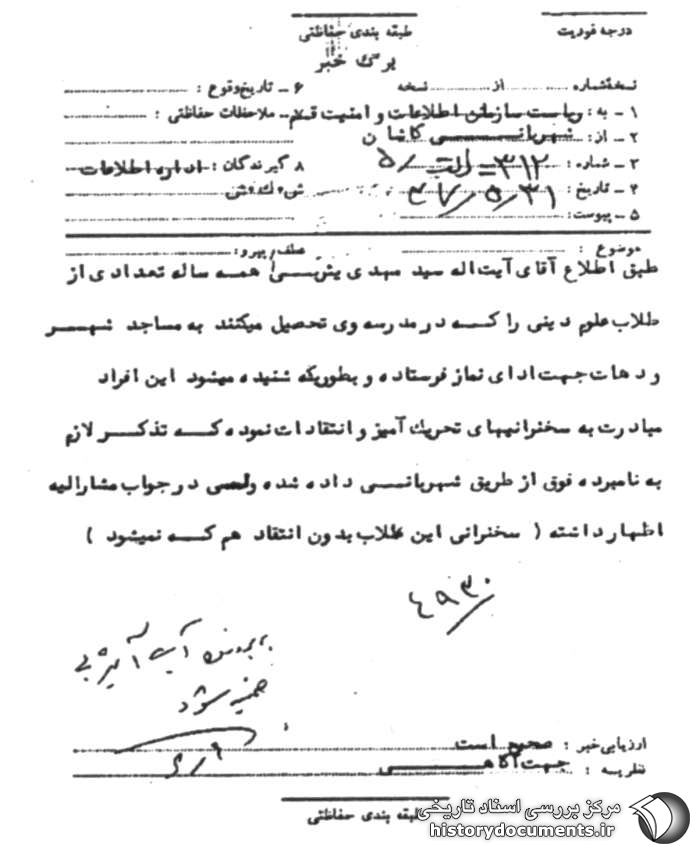 درجه فوریت
طبقه بندی حفاظتی
برگ خبر
نسخه شماره از نسخه
۱ ـ به: ریاست سازمان اطلاعات و امنیت قم
۲ ـ از: شهربانی کاشان
۳ ـ شماره : ۳۱۲ = الف ۵/
۴ ـ تاریخ : ۴۷/۵/۳۱
۵ ـ پیوست:
۶ ـ تاریخ وقوع :
۷ ـ ملاحظات حفاظتی :
۸ گیرندگان : اداره اطلاعات
ش ك ش
موضوع :
عطف / پیرو:
طبق اطلاع آقای آیت اله سید مهدی یثربی همه ساله تعدادی از
طلاب علوم دینی را که در مدرسه وی تحصیل میکنند به مساجد شهر
و دهات جهت ادای نماز فرستاده و بطوریکه شنیده میشود این افراد
مبادرت به سخنرانیهای تحریك آمیز و انتقادات نموده که تذکر لازم
به نامبرده فوق از طریق شهربانی داده شده ولی در جواب مشارالیه
اظهار داشته ( سخنرانی این طلاب بدون انتقاد هم که نمیشود )
۴۹۳۰
ضمیمه شود
۶/۹
ارزیابی خبر : صحیح است
نظریه : جهت آگاهی
طبقه بندی حفاظتی
مرکز بررسی اسناد تاریخی
historydocuments.ir